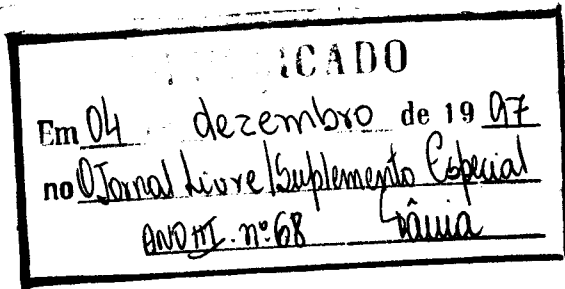 ICADO
Em 04 dezembro de 19 97
no O Jornal Livre/Suplemento Especial
ANO III. nº 68 Vânia